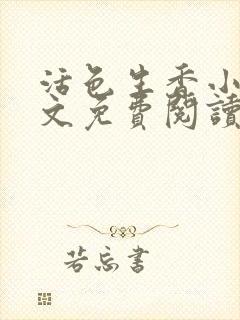 活色生香小
文免費閱讀
若忘書